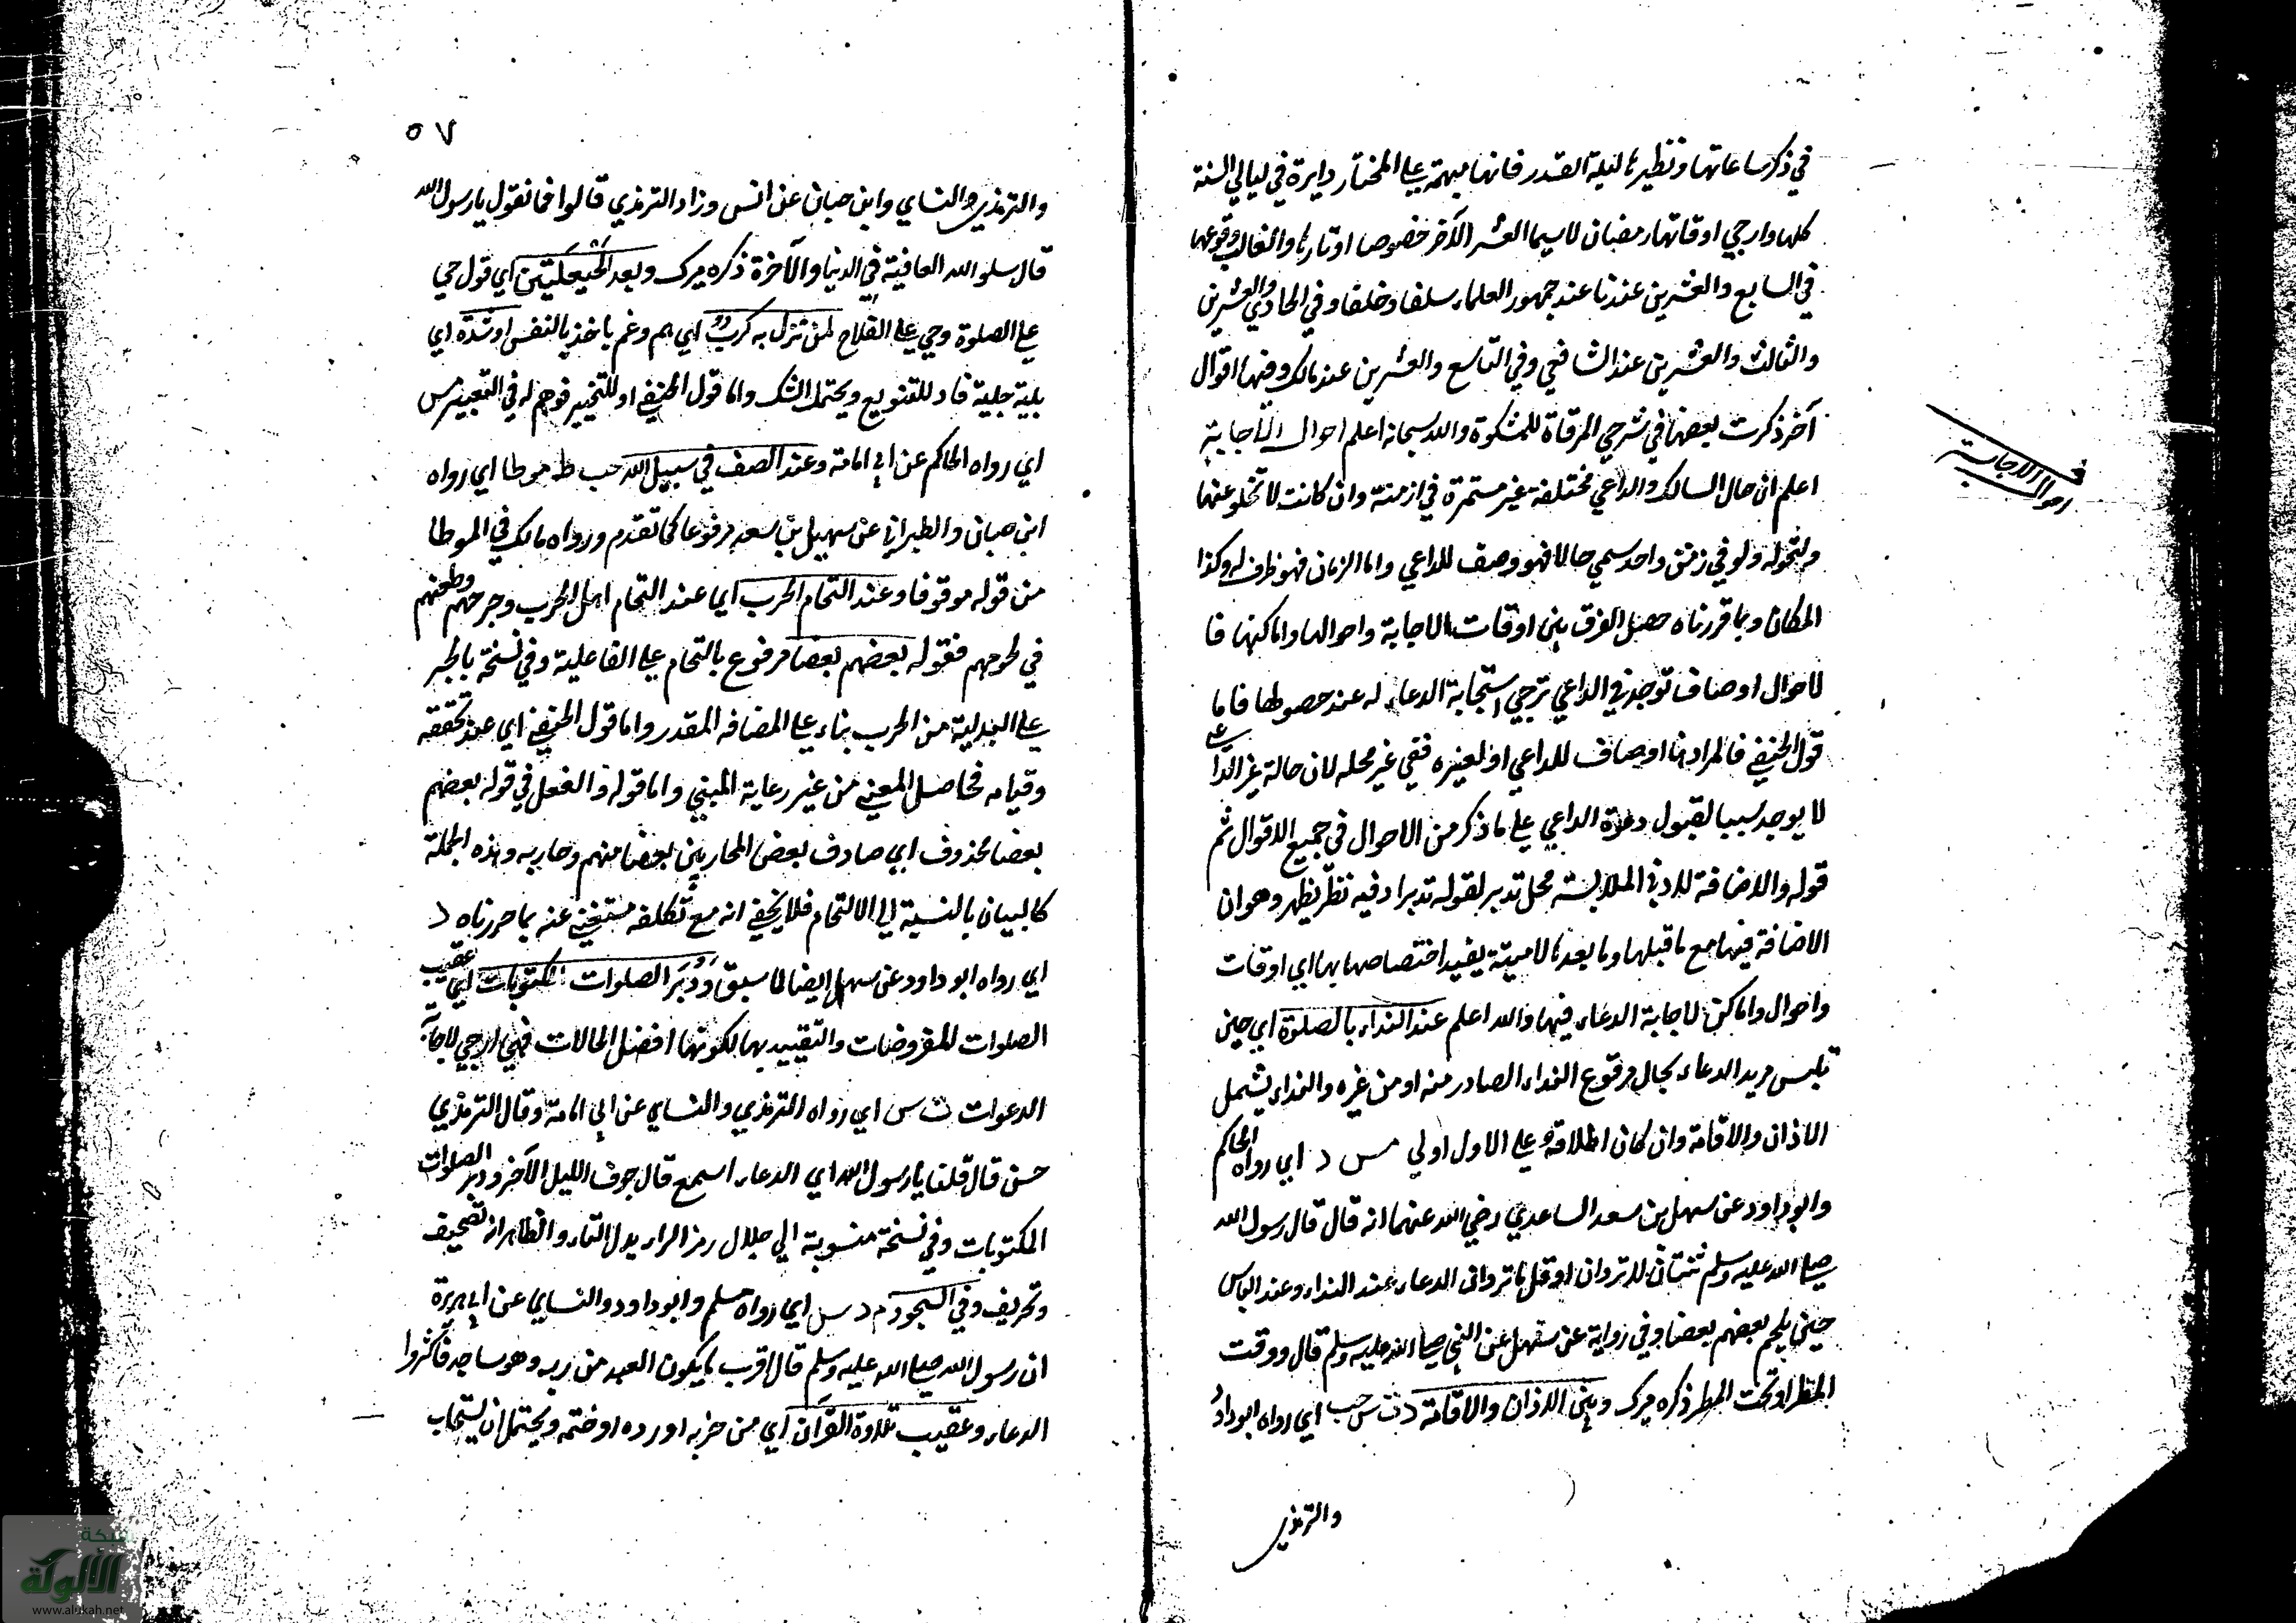 في ذكر ساعاتها ونظيرها ليلة القدر فانها مبهمة على المختار دايرة في ليالي السنة
كلها وارجي اوقاتها رمضان لاسيما العشر الآخر خصوصا اوتارها والغالب وقوعها
في السابع والعشرين عندنا عند جمهور العلماء سلفا وخلفا وفي الحادي والعشرين
والثالث والعشرين عند الشافعي وفي التاسع والعشرين عند مالك وفيها اقوال
آخر ذكرت بعضها في شرحي المرقاة للمشكوة والله سبحانه اعلم احوال الاجابة
اعلم ان حال السالك والداعي مختلفة غير مستمرة في ازمنة وان كانت لا تخلو عنها
ولتحوله ولو في زمن واحد سمي حالا فهو وصف للداعي واما الزمان فهو ظرف له وكذا
المكان وبما قررناه حصل الفرق بين اوقات الاجابة واحوالها واماكنها فا
لاحوال اوصاف توجد في الداعي ترجي استجابة الدعاء له عند حصولها فاما
قول الحنفي فالمراد بها اوصاف للداعي او لغيره ففي غير محله لان حالة غير الداعي
لا يوجد سببا لقبول دعوة الداعي على ما ذكر من الاحوال في جميع الاقوال ثم
قوله والاضافة لادني الملابسة محل تدبر لقوله تدبر اد فيه نظر يظهر وهو ان
الاضافة فيها مع ما قبلها وما بعدها لامية يفيد اختصاصها بها اي اوقات
واحوال واماكن لاجابة الدعاء فيها والله اعلم عند النداء بالصلوة اي حين
تلبس مريد الدعاء بحال وقوع النداء الصادر منه او من غيره والنداء يشمل
الاذان والاقامة وان كان اطلاقه على الاول اولي مس د اي رواه الحاكم
وابو داود عن سهل بن سعد الساعدي رضي الله عنهما انه قال قال رسول الله
صلى الله عليه وسلم ثنتان لا تردان او قل ما تردان الدعاء عند النداء وعند البأس
حين يلحم بعضهم بعضا وفي رواية عن سهل عن النبي صلى الله عليه وسلم قال ووقت
المطر او تحت المطر ذكره ميرك وبين الاذان والاقامة د ت س حب اي رواه ابو داود
والترمذي
احوال الاجابة
٥٧
والترمذي والنساي وابن حبان عن انس وزاد الترمذي قالوا فما نقول يا رسول الله
قال سلوا الله العافية في الدنيا والآخرة ذكره ميرك وبعد الحيعلتين اي قول حي
على الصلوة وحي على الفلاح لمن نزل به كرب اي هم وغم ياخذ بالنفس او شدة اي
بلية جلية فاد للتنويع ويحتمل الشك واما قول الحنفي او للتخيير فوجهه في التعبير مس
اي رواه الحاكم عن ابي امامة وعند الصف في سبيل الله حب ط موطا اي رواه
ابن حبان والطبراني عن سهيل بن سعد مرفوعا كما تقدم ورواه مالك في الموطا
من قوله موقوفا وعند التحام الحرب اي عند التحام اهل الحرب وجرحهم وطعنهم
في لحومهم فقوله بعضهم بعضا مرفوع بالتحام على الفاعلية وفي نسخة بالجر
على البدلية من الحرب بناء على المضافه المقدر واما قول الحنفي اي عند تحققه
وقيامه فحاصل المعنى من غير رعاية المبني واما قوله والفعل في قوله بعضهم
بعضا محذوف اي صادف بعض المحاربين بعضا منهم وحاربه وهذه الجملة
كالبيان بالنسبة الي الالتحام فلا يخفي انه مع تكلفه مستغني عنه بما حررناه د
اي رواه ابو داود عن سهل ايضا لما سبق ودبر الصلوات المكتوبات اي عقيب
الصلوات المفروضات والتقييد بها لكونها افضل الحالات فهي ارجي لاجابة
الدعوات ت س اي رواه الترمذي والنساي عن ابي امامة وقال الترمذي
حسن قال قلنا يا رسول الله اي الدعاء اسمع قال جوف الليل الآخر ودبر الصلوات
المكتوبات وفي نسخة منسوبة الي جلال رمز الراء بدل التاء والظاهر انه تصحيف
وتحريف وفي السجود م د س اي رواه مسلم وابو داود والنساي عن ابي هريرة
ان رسول الله صلى الله عليه وسلم قال اقرب ما يكون العبد من ربه وهو ساجد فاكثروا
الدعاء وعقيب تلاوة القرآن اي من حزبه او رده او ختمه ويحتمل ان يستجاب
شبكة
الألوكة
www.alukah.net